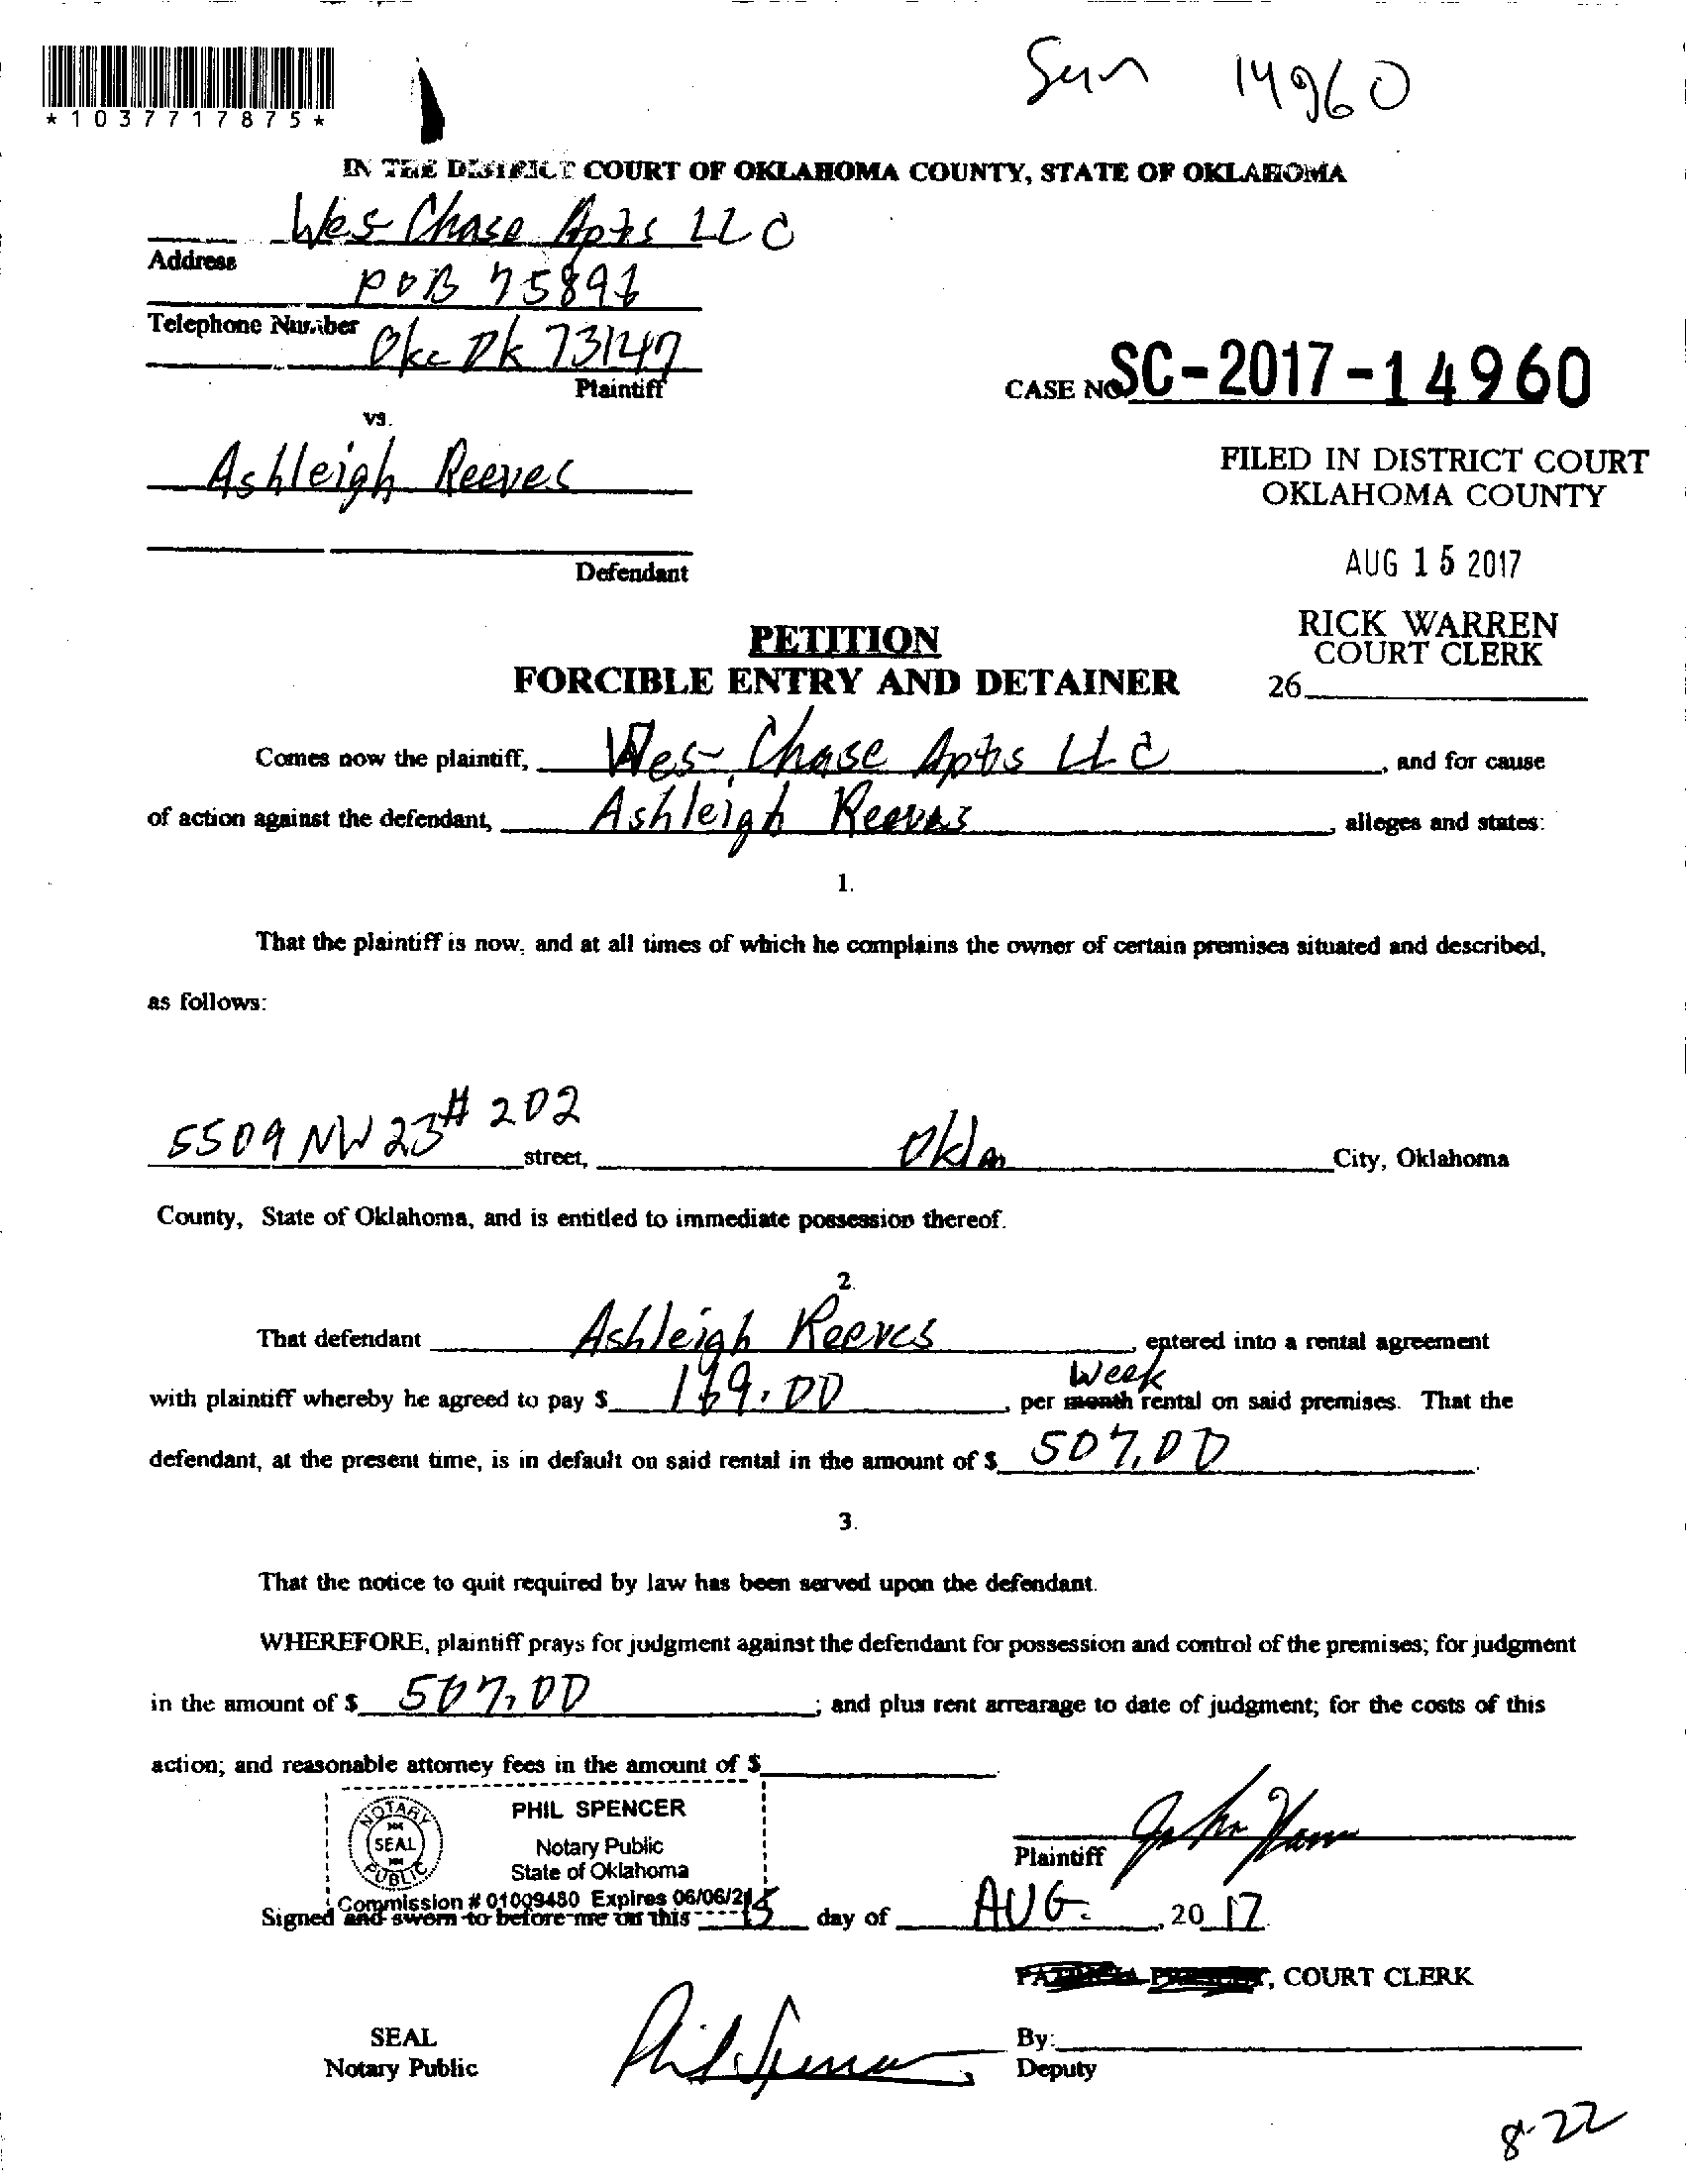 Sun 14960
*1037717875*
IN THE DISTRICT COURT OF OKLAHOMA COUNTY, STATE OF OKLAHOMA
Wes Chase Apts LLC
Address
POB 75891
Telephone Number
Okc Ok 73147
Plaintiff
CASE NO SC-2017-14960
vs.
Ashleigh Reeves
FILED IN DISTRICT COURT
OKLAHOMA COUNTY
Defendant
AUG 15 2017
RICK WARREN
COURT CLERK
26
PETITION
FORCIBLE ENTRY AND DETAINER
Comes now the plaintiff, Wes Chase Apts LLC, and for cause
of action against the defendant, Ashleigh Reeves, alleges and states:
1.
That the plaintiff is now, and at all times of which he complains the owner of certain premises situated and described,
as follows:
5509 NW 23 # 202 street, Okla City, Oklahoma
County, State of Oklahoma, and is entitled to immediate possession thereof.
2.
That defendant Ashleigh Reeves, entered into a rental agreement
Week
with plaintiff whereby he agreed to pay $ 169.00, per month rental on said premises. That the
defendant, at the present time, is in default on said rental in the amount of $ 507.00.
3.
That the notice to quit required by law has been served upon the defendant.
WHEREFORE, plaintiff prays for judgment against the defendant for possession and control of the premises; for judgment
in the amount of $ 507.00; and plus rent arrearage to date of judgment; for the costs of this
action; and reasonable attorney fees in the amount of $
NOTARY SEAL PUBLIC
PHIL SPENCER
Notary Public
State of Oklahoma
Commission # 01009480 Expires 06/06/21
Plaintiff
Signed and sworn to before me on this 15 day of AUG., 2017.
, COURT CLERK
SEAL
Notary Public
Phil Spencer
By:
Deputy
8-22